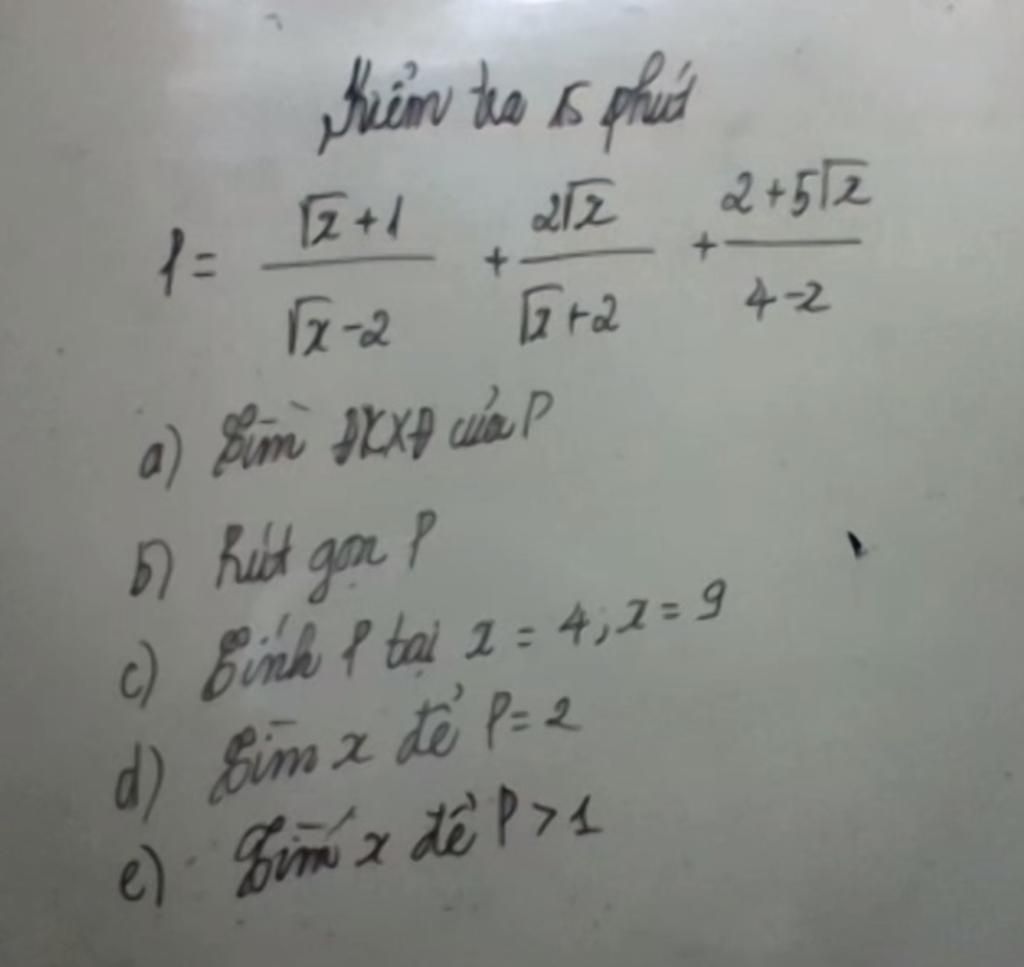 Kiểm tra 15 phút
P = (√x + 1)/(√x - 2) + (2√x)/(√x + 2) + (2 + 5√x)/(4 - x)
a) Tìm ĐKXĐ của P
b) Rút gọn P
c) Tính P tại x = 4; x = 9
d) Tìm x để P = 2
e) Tìm x để P > 1